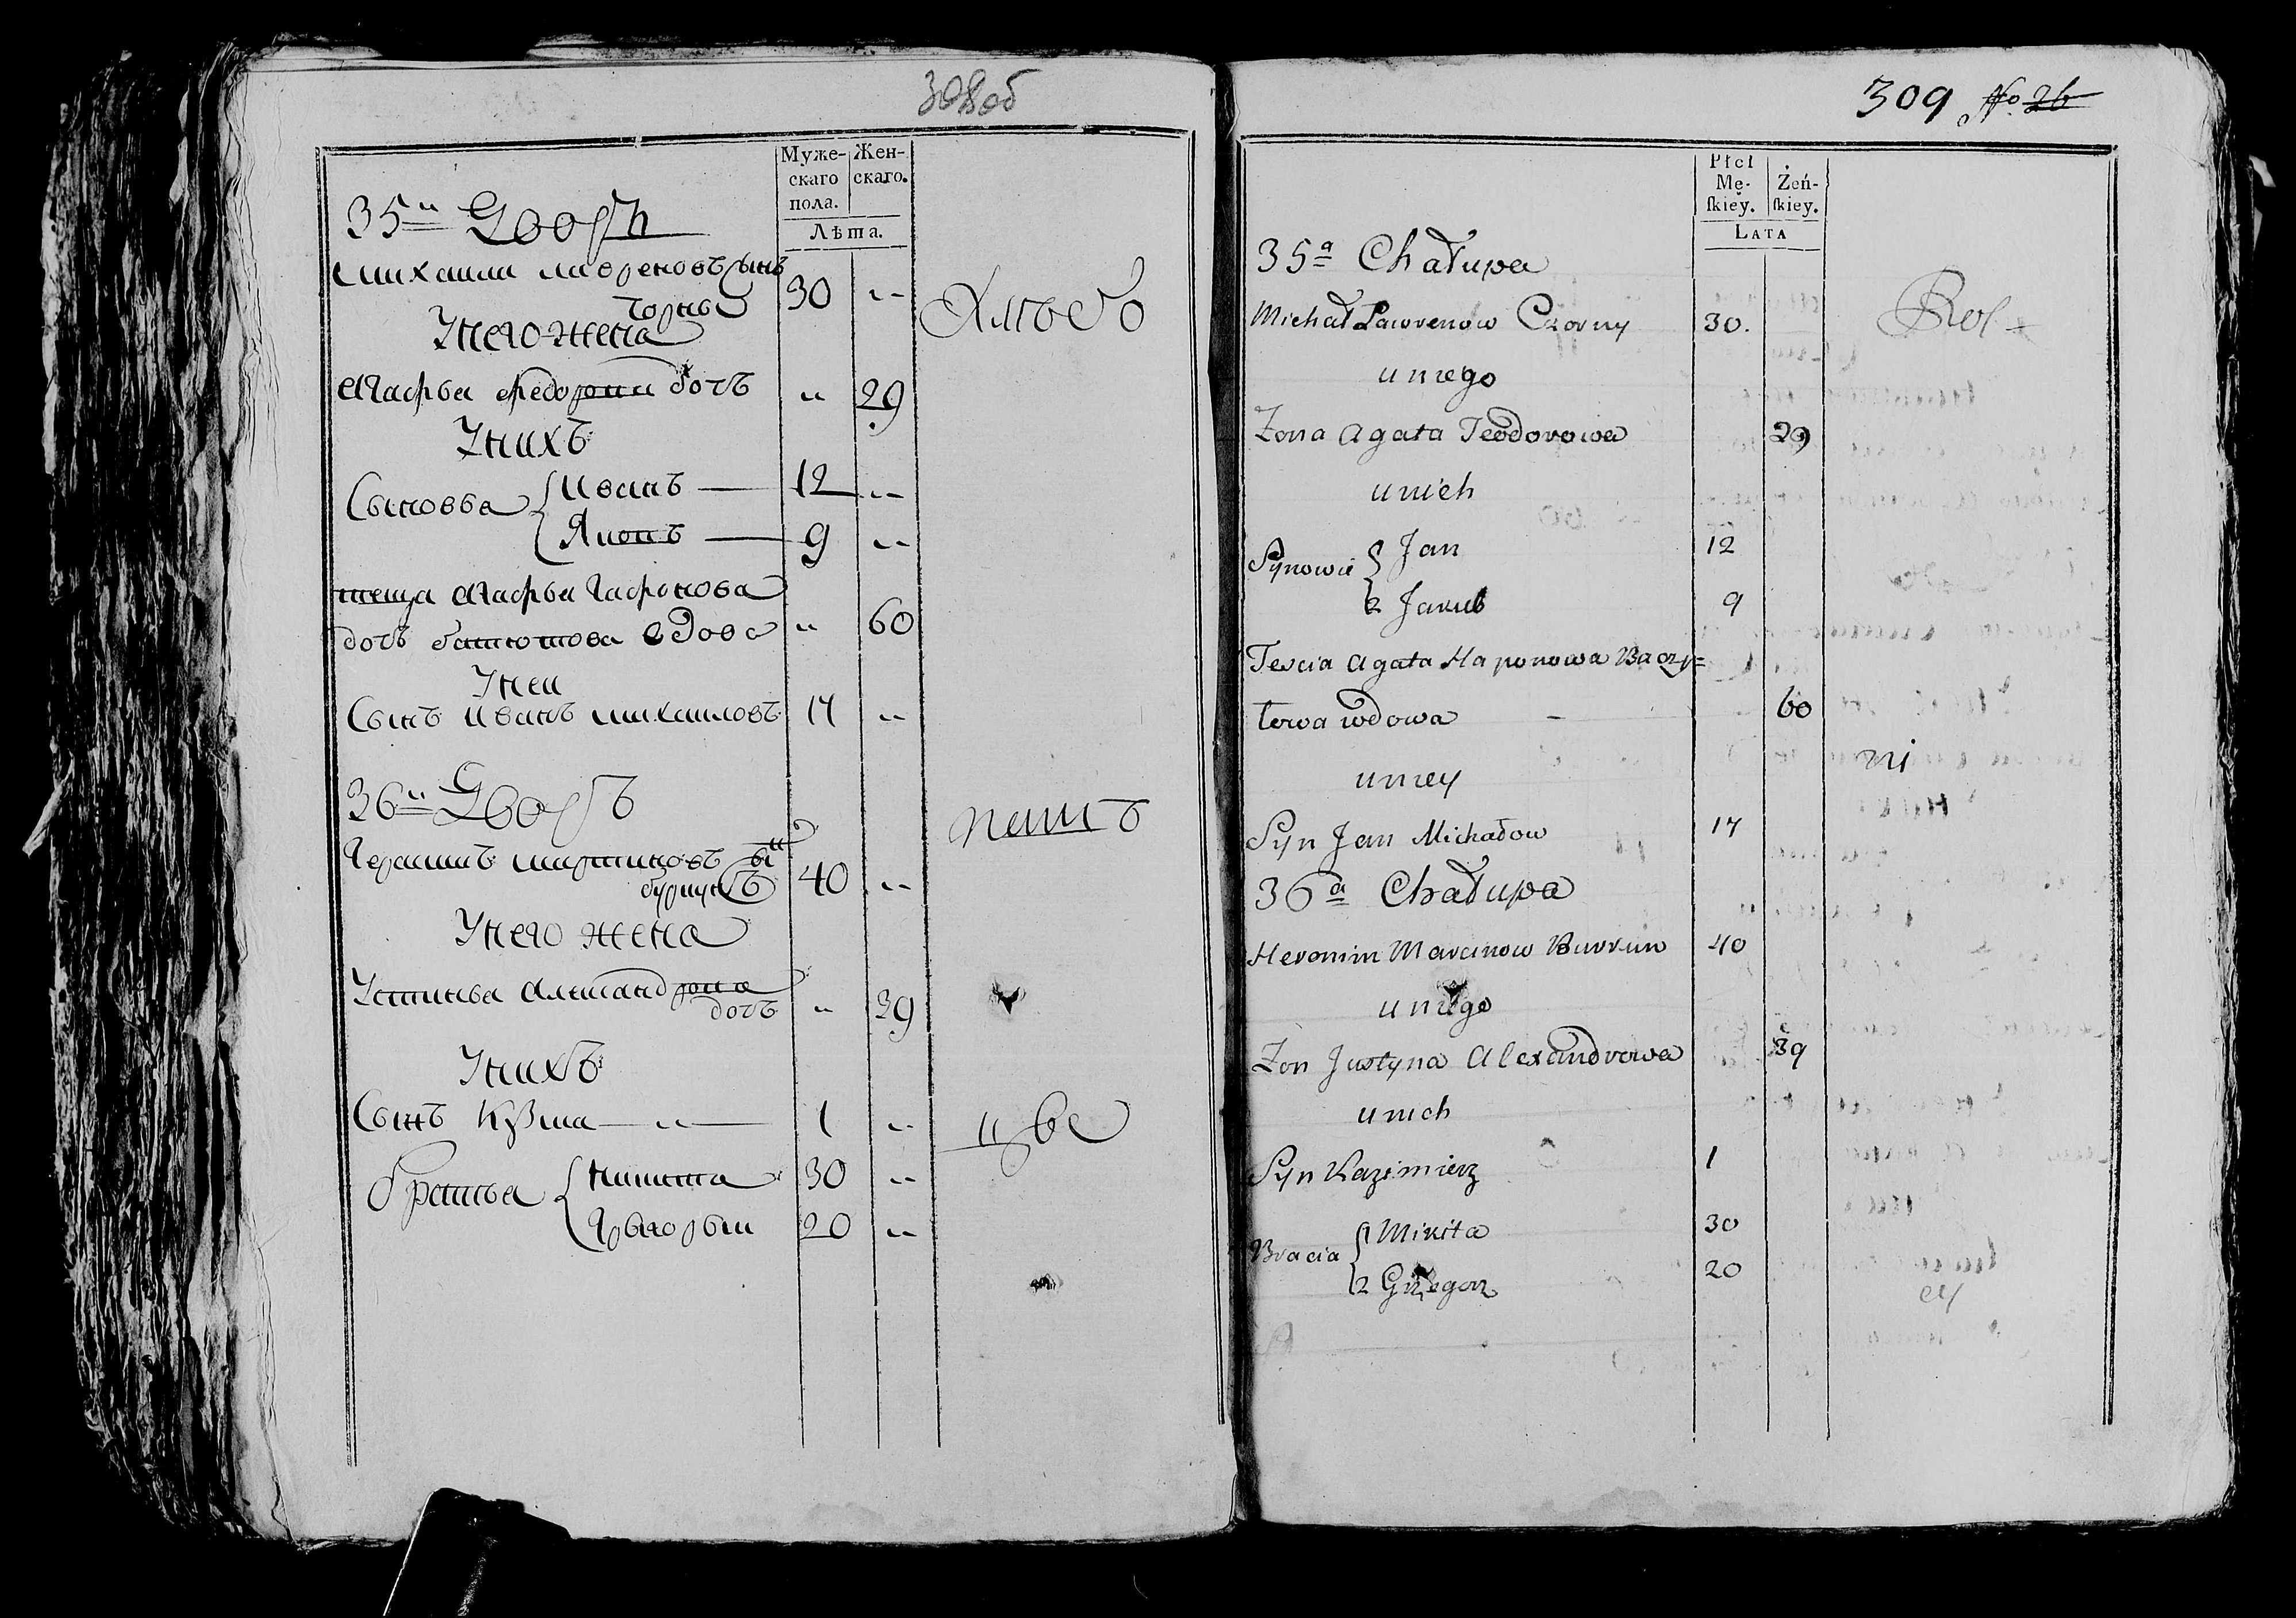 308 об
Муже-
скаго
пола.
Жен-
скаго.
Лѣта.
35й Дворъ
Михаила Лавреновъ Сынъ
Чорный 30 "
Унего жена
Агафья Федорова дочь " 29
Унихъ
Сыновья { Иванъ — 12 "
Яковъ — 9 "
теща Агафья Гафонова
дочь вдова " 60
Унеи
Сынъ Иванъ Михаиловъ 17 "
36й Дворъ
Мартиновъ
40 "
Унего жена
Устинья Александрова
дочь " 39
Унихъ
Сынъ Кузма — " — 1 "
братья { Никита 30 "
Грыгорыи 20 "
309 No. 26
Płci
Mę-
skiey.
Żeń-
skiey.
LATA
35a Chałupa
Michał Lawrenow Czorny 30.
u niego
Zona Agata Teodorowa 29
u nich
Synowie { Jan 12
2 Jakub 9
Tescia Agata Haponowa Baczy=
towa wdowa — 60
u niey
Syn Jan Michałow 17
36a Chałupa
Heronim Marcinow Burkun 40
u niego
Zon Justyna Alexandrowa 39
u nich
Syn Kazimierz 1
Bracia { Mikita 30
2 Grzegorz 20